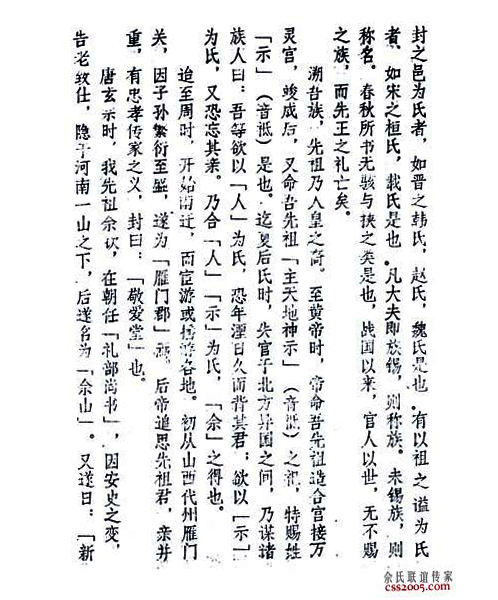 封之邑为氏者，如晋之韩氏，赵氏，魏氏是也。有以祖之谥为氏
者，如宋之桓氏，戴氏是也。凡大夫即族锡，则称族。未锡族，则
称名。春秋所书无骇与挟之类是也，战国以来，官人以世，无不赐
之族，而先王之礼亡矣。
溯吾族，先祖乃人皇之裔。至黄帝时，帝命吾先祖造合宫接万
灵宫，竣成后，又命吾先祖「主天地神示」（音祗）之祀，特赐姓
「示」（音祗）是也。迄夏后氏时，失官于北方异国之间，乃谋诸
族人曰：吾等欲以「人」为氏，恐年湮日久而背其君；欲以「示」
为氏，又恐忘其亲。乃合「人」「示」为氏，「佘」之得也。
迨至周时，开始南迁，而宦游或 各地。初从山西代州雁门
关，因子孙繁衍至盛，遂为「雁门郡」 ，后帝追思先祖君，亲并
重，有忠孝传家之义，封曰：「敬爱堂」也。
唐玄宗时，我先祖佘钦，在朝任「礼部尚书」，因安史之变，
告老致仕，隐于河南一山之下，后遂名为「佘山」。又遂曰：「新
佘氏联谊传家
css2005.com